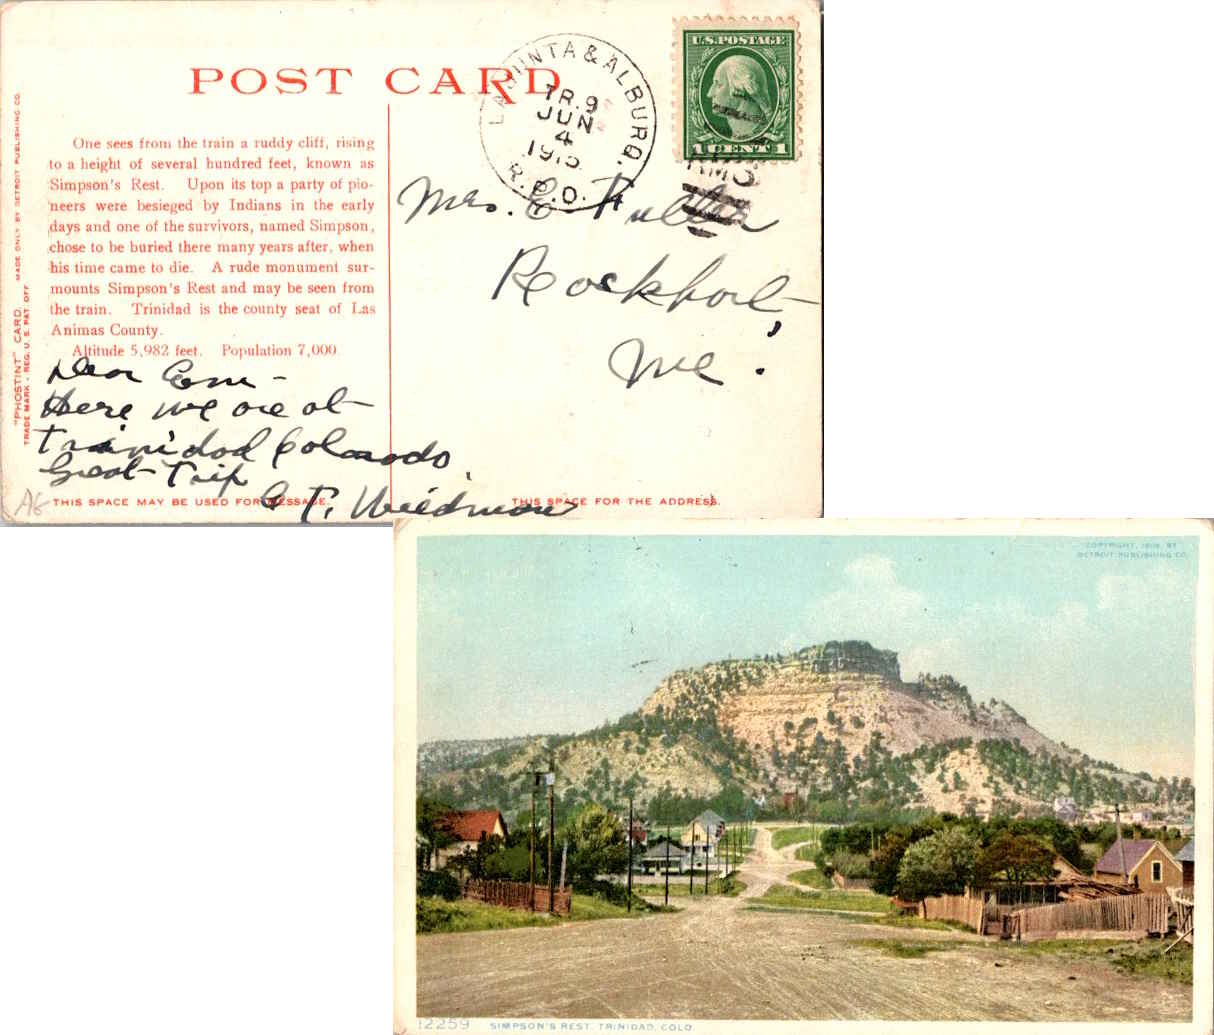 POST CARD
LA JUNTA & ALBURQ.
TR. 9
JUN
4
R.P.O.
U.S. POSTAGE
1 CENT 1
RMS
"PHOSTINT" CARD. MADE ONLY BY DETROIT PUBLISHING CO.
TRADE MARK - REG. U.S. PAT. OFF.
One sees from the train a ruddy cliff, rising
to a height of several hundred feet, known as
Simpson's Rest. Upon its top a party of pio-
neers were besieged by Indians in the early
days and one of the survivors, named Simpson,
chose to be buried there many years after, when
his time came to die. A rude monument sur-
mounts Simpson's Rest and may be seen from
the train. Trinidad is the county seat of Las
Animas County.
Altitude 5,982 feet. Population 7,000.
Mrs. E Fuller
Rockport,
Me.
Dear Em -
Here we are at
Trinidad Colorado,
Great Trip
THIS SPACE MAY BE USED FOR MESSAGE.
THIS SPACE FOR THE ADDRESS.
AG
COPYRIGHT, BY
DETROIT PUBLISHING CO.
12259 SIMPSON'S REST, TRINIDAD, COLO